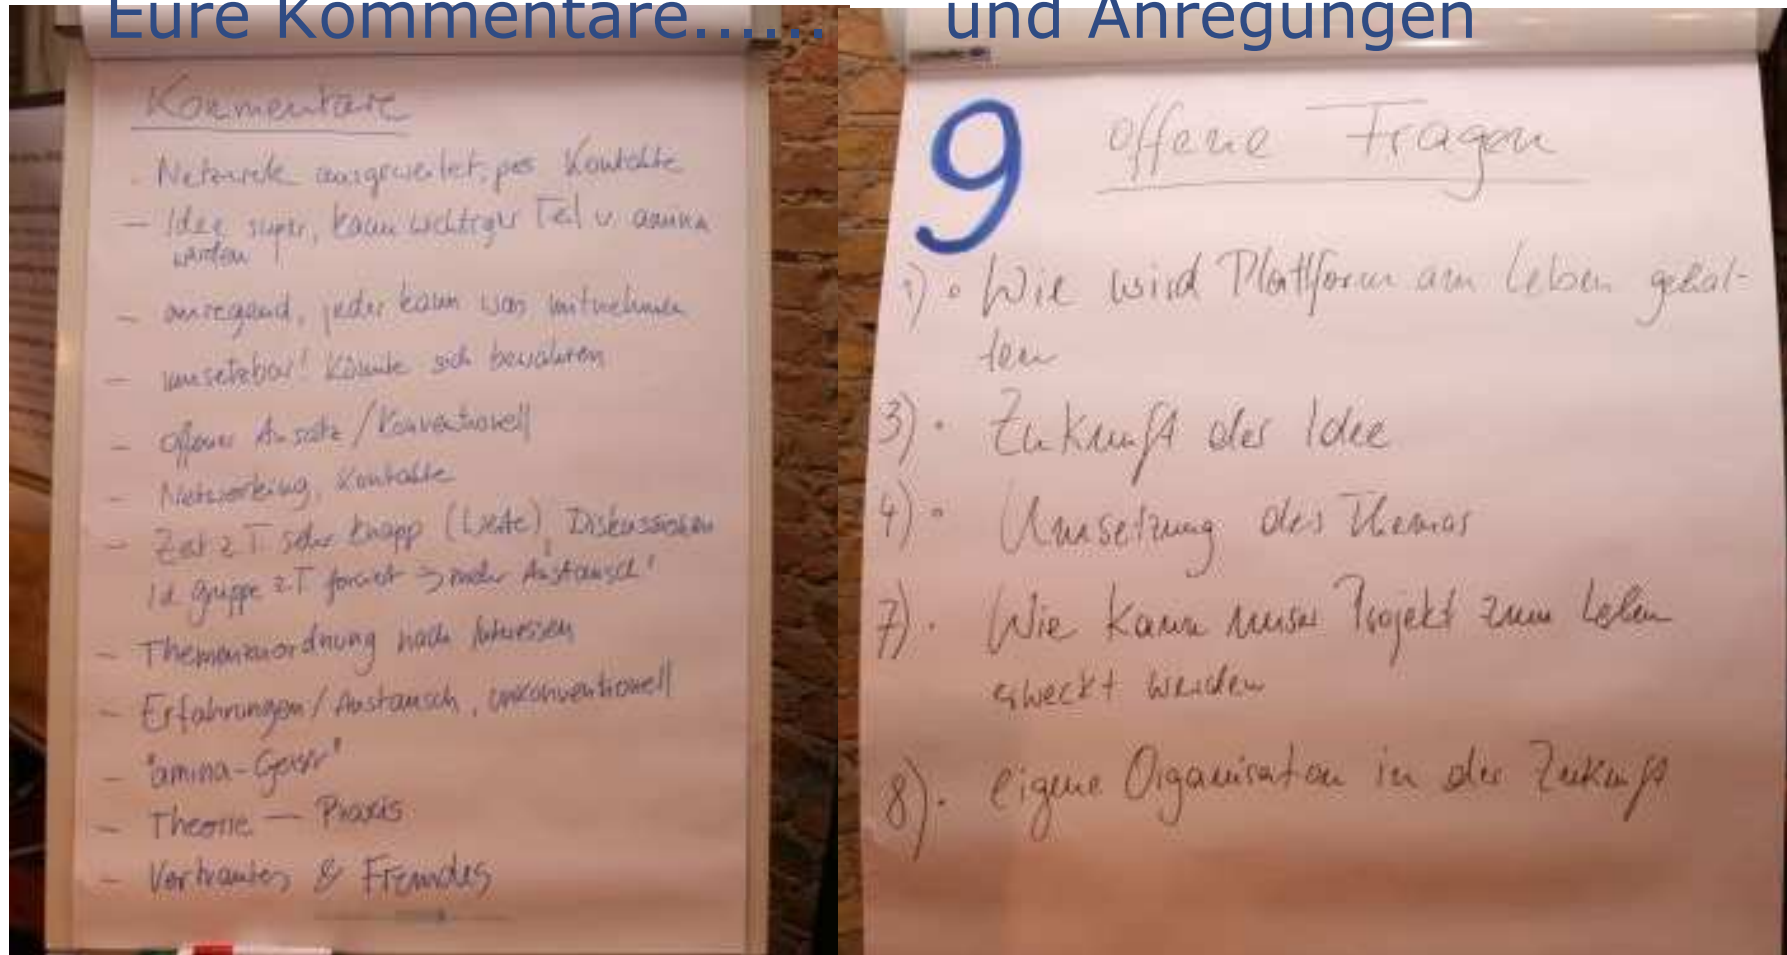 Eure Kommentare...... und Anregungen
Kommentare
- Netzwerk ausgeweitet, pos Kontakte
- Idee super, kann wichtiger Teil v. amina
werden
- anregend, jeder kann was mitnehmen
- umsetzbar! Könnte sich bewähren
- offener Ansatz / Konventionell
- Networking, Kontakte
- Zeit z T sehr knapp (Leute), Diskussionen
Gruppe z T forciert → mehr Austausch!
- Themenzuordnung nach Interessen
- Erfahrungen / Austausch, unkonventionell
- "amina-Geist"
- Theorie — Praxis
- Vertrautes & Fremdes
9
offene Fragen
1) • Wie wird Plattform am Leben gehal-
ten
3) • Zukunft der Idee
4) • Umsetzung des Themas
7) • Wie kann unser Projekt zum Leben
erweckt werden
8) • eigene Organisation in der Zukunft